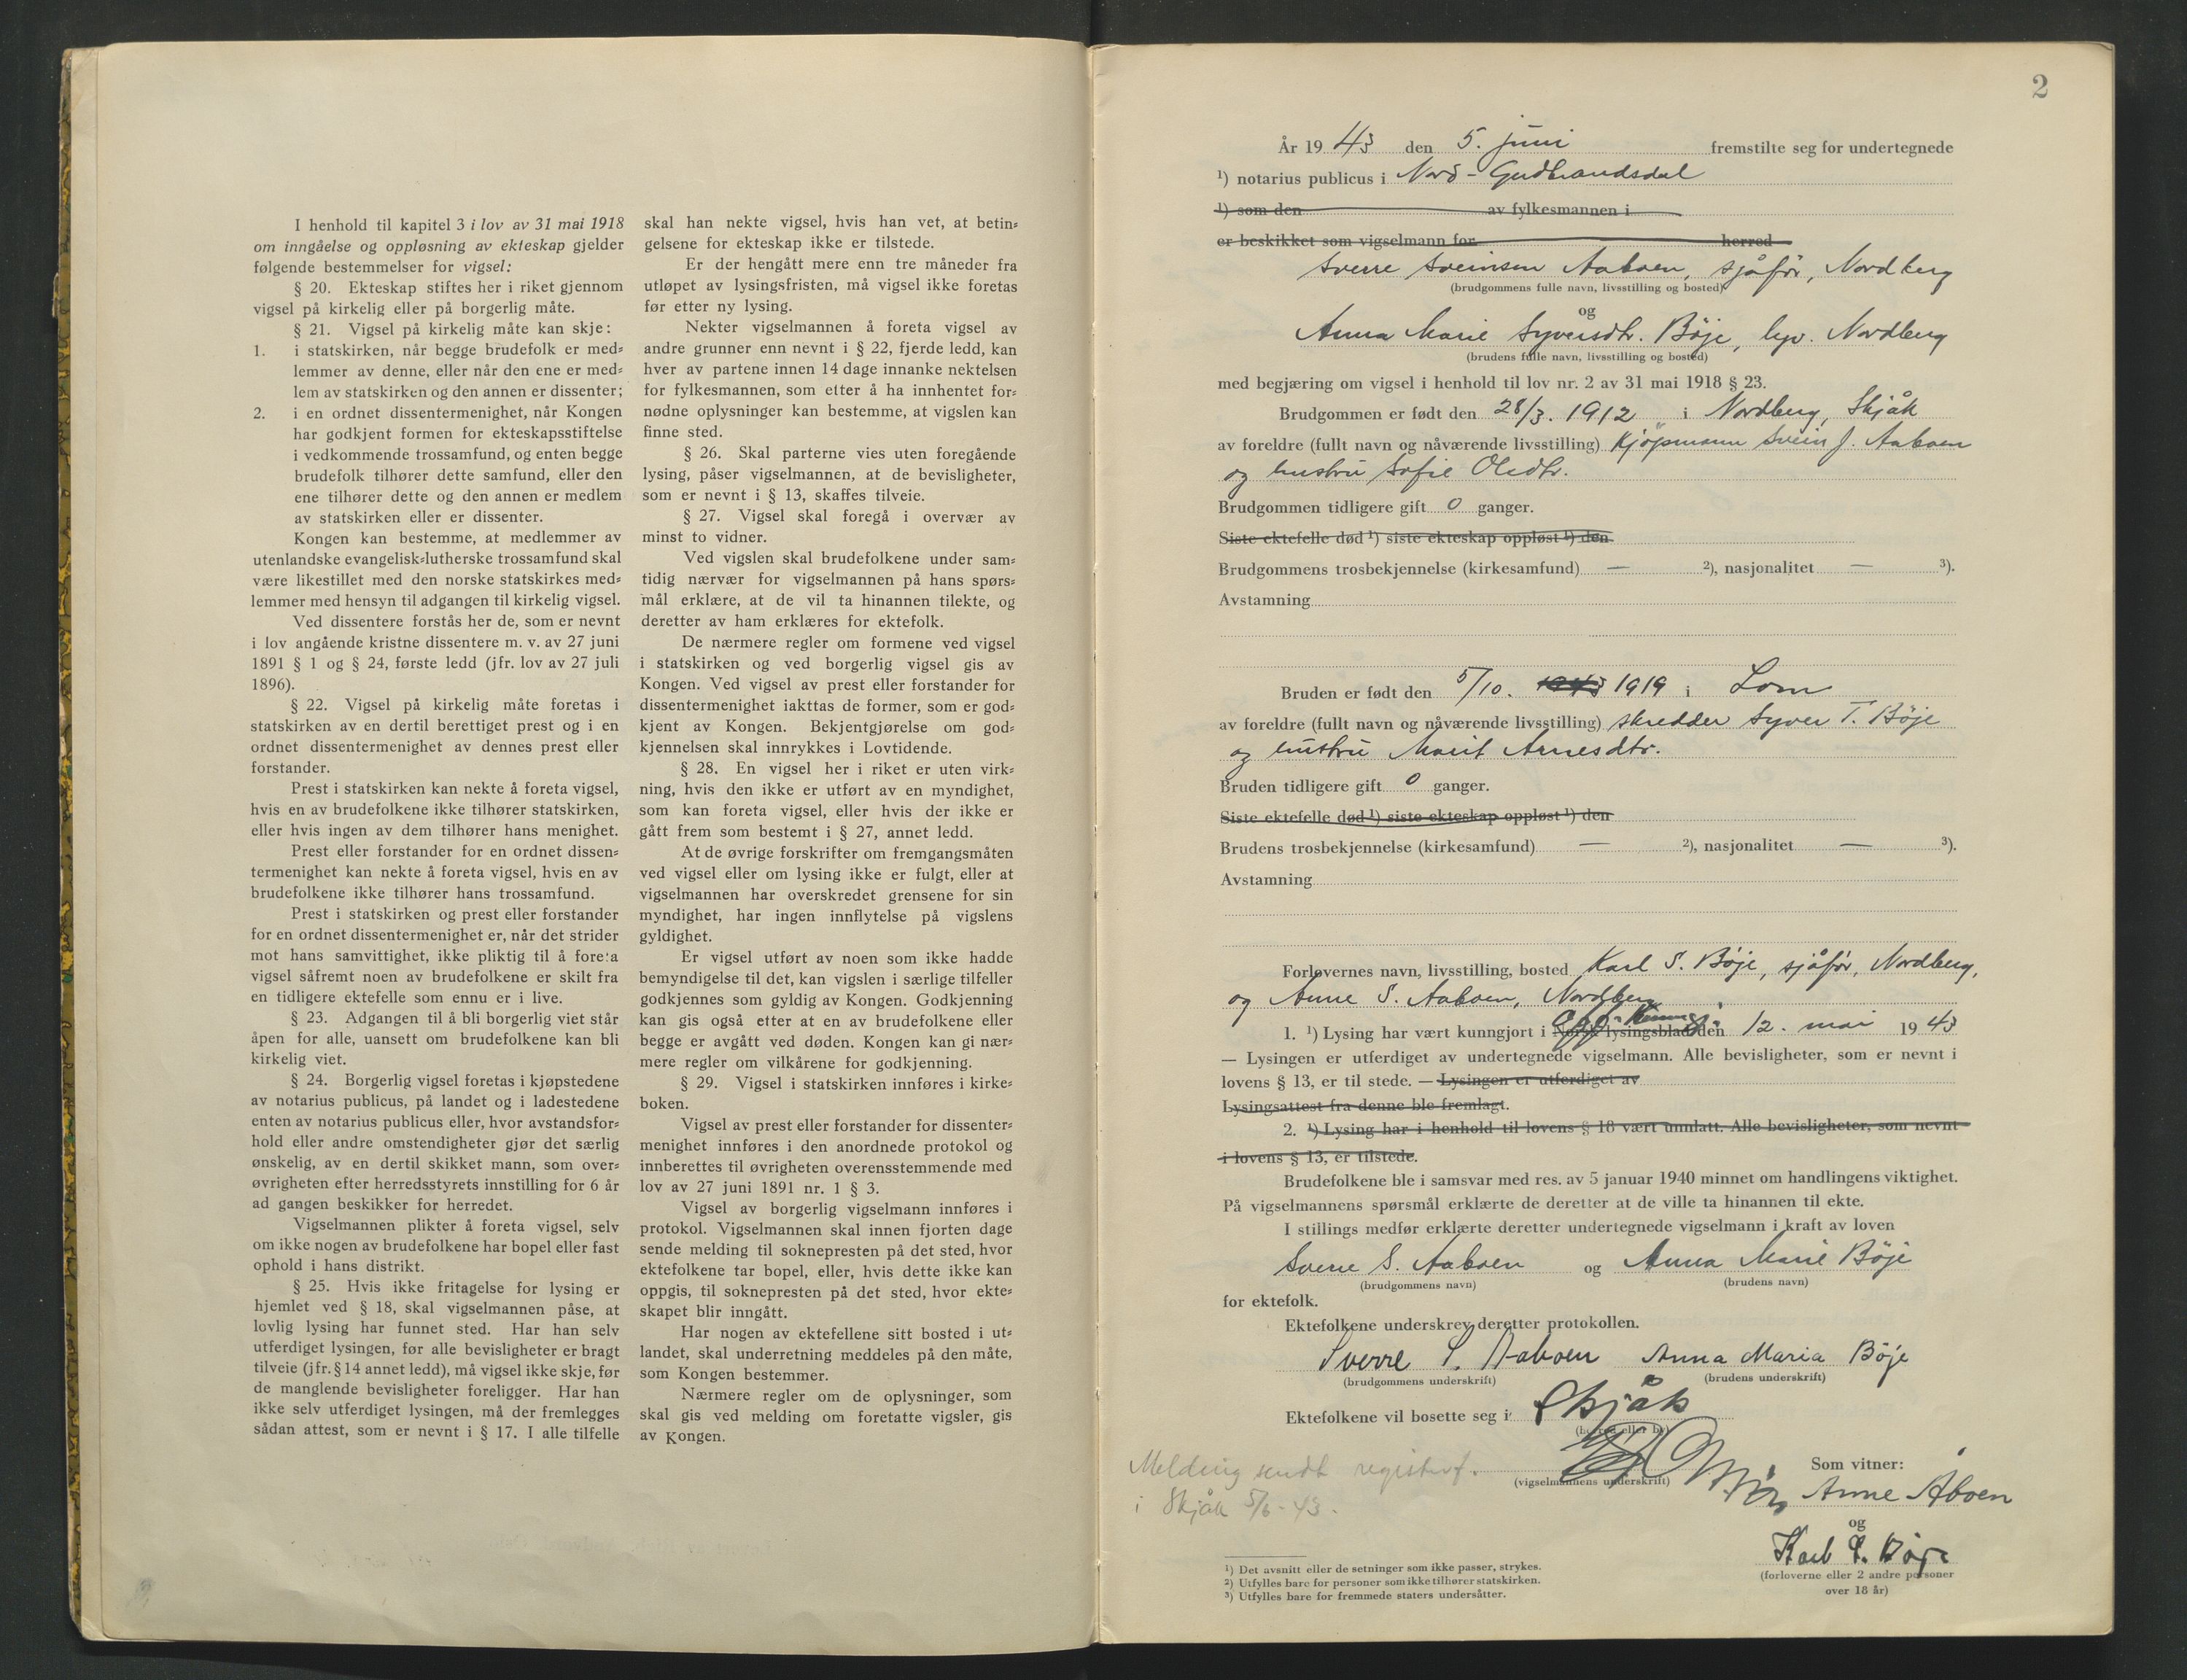 I henhold til kapitel 3 i lov av 31 mai 1918
om inngåelse og oppløsning av ekteskap gjelder
følgende bestemmelser for vigsel:
§ 20. Ekteskap stiftes her i riket gjennom
vigsel på kirkelig eller på borgerlig måte.
§ 21. Vigsel på kirkelig måte kan skje:
1. i statskirken, når begge brudefolk er med-
lemmer av denne, eller når den ene er med-
lem av statskirken og den annen er dissenter;
2. i en ordnet dissentermenighet, når Kongen
har godkjent formen for ekteskapsstiftelse
i vedkommende trossamfund, og enten begge
brudefolk tilhører dette samfund, eller den
ene tilhører dette og den annen er medlem
av statskirken eller er dissenter.
Kongen kan bestemme, at medlemmer av
utenlandske evangelisk-lutherske trossamfund skal
være likestillet med den norske statskirkes med-
lemmer med hensyn til adgangen til kirkelig vigsel.
Ved dissentere forstås her de, som er nevnt
i lov angående kristne dissentere m. v. av 27 juni
1891 § 1 og § 24, første ledd (jfr. lov av 27 juli
1896).
§ 22. Vigsel på kirkelig måte foretas i
statskirken av en dertil berettiget prest og i en
ordnet dissentermenighet av dennes prest eller
forstander.
Prest i statskirken kan nekte å foreta vigsel,
hvis en av brudefolkene ikke tilhører statskirken,
eller hvis ingen av dem tilhører hans menighet.
Prest eller forstander for en ordnet dissen-
termenighet kan nekte å foreta vigsel, hvis en av
brudefolkene ikke tilhører hans trossamfund.
Prest i statskirken og prest eller forstander
for en ordnet dissentermenighet er, når det strider
mot hans samvittighet, ikke pliktig til å foreta
vigsel såfremt noen av brudefolkene er skilt fra
en tidligere ektefelle som ennu er i live.
§ 23. Adgangen til å bli borgerlig viet står
åpen for alle, uansett om brudefolkene kan bli
kirkelig viet.
§ 24. Borgerlig vigsel foretas i kjøpstedene
av notarius publicus, på landet og i ladestedene
enten av notarius publicus eller, hvor avstandsfor-
hold eller andre omstendigheter gjør det særlig
ønskelig, av en dertil skikket mann, som over-
øvrigheten efter herredsstyrets innstilling for 6 år
ad gangen beskikker for herredet.
Vigselmannen plikter å foreta vigsel, selv
om ikke nogen av brudefolkene har bopel eller fast
ophold i hans distrikt.
§ 25. Hvis ikke fritagelse for lysing er
hjemlet ved § 18, skal vigselmannen påse, at
lovlig lysing har funnet sted. Har han selv
utferdiget lysingen, før alle bevisligheter er bragt
tilveie (jfr. § 14 annet ledd), må vigsel ikke skje, før
de manglende bevisligheter foreligger. Har han
ikke selv utferdiget lysingen, må der fremlegges
sådan attest, som er nevnt i § 17. I alle tilfelle
skal han nekte vigsel, hvis han vet, at betin-
gelsene for ekteskap ikke er tilstede.
Er der hengått mere enn tre måneder fra
utløpet av lysingsfristen, må vigsel ikke foretas
før etter ny lysing.
Nekter vigselmannen å foreta vigsel av
andre grunner enn nevnt i § 22, fjerde ledd, kan
hver av partene innen 14 dage innanke nektelsen
for fylkesmannen, som etter å ha innhentet for-
nødne oplysninger kan bestemme, at vigslen kan
finne sted.
§ 26. Skal parterne vies uten foregående
lysing, påser vigselmannen, at de bevisligheter,
som er nevnt i § 13, skaffes tilveie.
§ 27. Vigsel skal foregå i overvær av
minst to vidner.
Ved vigslen skal brudefolkene under sam-
tidig nærvær for vigselmannen på hans spørs-
mål erklære, at de vil ta hinannen tilekte, og
deretter av ham erklæres for ektefolk.
De nærmere regler om formene ved vigsel
i statskirken og ved borgerlig vigsel gis av
Kongen. Ved vigsel av prest eller forstander for
dissentermenighet iakttas de former, som er god-
kjent av Kongen. Bekjentgjørelse om god-
kjennelsen skal innrykkes i Lovtidende.
§ 28. En vigsel her i riket er uten virk-
ning, hvis den ikke er utført av en myndighet,
som kan foreta vigsel, eller hvis der ikke er
gått frem som bestemt i § 27, annet ledd.
At de øvrige forskrifter om fremgangsmåten
ved vigsel eller om lysing ikke er fulgt, eller at
vigselmannen har overskredet grensene for sin
myndighet, har ingen innflytelse på vigslens
gyldighet.
Er vigsel utført av noen som ikke hadde
bemyndigelse til det, kan vigslen i særlige tilfeller
godkjennes som gyldig av Kongen. Godkjenning
kan gis også etter at en av brudefolkene eller
begge er avgått ved døden. Kongen kan gi nær-
mere regler om vilkårene for godkjenning.
§ 29. Vigsel i statskirken innføres i kirke-
boken.
Vigsel av prest eller forstander for dissenter-
menighet innføres i den anordnede protokol og
innberettes til øvrigheten overensstemmende med
lov av 27 juni 1891 nr. 1 § 3.
Vigsel av borgerlig vigselmann innføres i
protokol. Vigselmannen skal innen fjorten dage
sende melding til soknepresten på det sted, hvor
ektefolkene tar bopel, eller, hvis dette ikke kan
oppgis, til soknepresten på det sted, hvor ekte-
skapet blir inngått.
Har nogen av ektefellene sitt bosted i ut-
landet, skal underretning meddeles på den måte,
som Kongen bestemmer.
Nærmere regler om de oplysninger, som
skal gis ved melding om foretatte vigsler, gis
av Kongen.
2
År 1943 den 5. juni fremstilte seg for undertegnede
1) notarius publicus i Nord-Gudbrandsdal
1) som den av fylkesmannen i
er beskikket som vigselmann for herred
Sverre Sveinsen Aaboen, sjåfør, Nordberg
(brudgommens fulle navn, livsstilling og bosted)
og
Anna Marie Syversdtr. Böje, hjv. Nordberg
(brudens fulle navn, livsstilling og bosted)
med begjæring om vigsel i henhold til lov nr. 2 av 31 mai 1918 § 23.
Brudgommen er født den 28/3. 1912 i Nordberg, Skjåk
av foreldre (fullt navn og nåværende livsstilling) Kjøpmann Svein J. Aaboen
og hustru Sofie Olsdtr.
Brudgommen tidligere gift 0 ganger.
Siste ektefelle død 1) siste ekteskap oppløst 1) den
Brudgommens trosbekjennelse (kirkesamfund) — 2), nasjonalitet — 3).
Avstamning
Bruden er født den 5/10. 1943 1919 i Lom
av foreldre (fullt navn og nåværende livsstilling) skredder Syver T. Böje
og hustru Marit Arnesdtr.
Bruden tidligere gift 0 ganger.
Siste ektefelle død 1) siste ekteskap oppløst 1) den
Brudens trosbekjennelse (kirkesamfund) — 2), nasjonalitet — 3).
Avstamning
Forlovernes navn, livsstilling, bosted Karl S. Böje, sjåfør, Nordberg,
og Anne S. Aaboen, Nordberg
1. 1) Lysing har vært kunngjort i Norsk lysingsblad den 12. mai 1943
— Lysingen er utferdiget av undertegnede vigselmann. Alle bevisligheter, som er nevnt i
lovens § 13, er til stede. — Lysingen er utferdiget av
Lysingsattest fra denne ble fremlagt.
2. 1) Lysing har i henhold til lovens § 18 vært unnlatt. Alle bevisligheter, som nevnt
i lovens § 13, er tilstede.
Brudefolkene ble i samsvar med res. av 5 januar 1940 minnet om handlingens viktighet.
På vigselmannens spørsmål erklærte de deretter at de ville ta hinannen til ekte.
I stillings medfør erklærte deretter undertegnede vigselmann i kraft av loven
Sverre S. Aaboen og Anna Marie Böje
(brudgommens navn) (brudens navn)
for ektefolk.
Ektefolkene underskrev deretter protokollen.
Sverre S. Aaboen Anna Maria Böje
(brudgommens underskrift) (brudens underskrift)
Ektefolkene vil bosette seg i Skjåk
(herred eller by)
Melding sendt registerf.
i Skjåk 5/6-43.
(vigselmannens underskrift)
Som vitner:
Anne Åboen
og
Karl S. Böje
(forloverne eller 2 andre personer
over 18 år)
1) Det avsnitt eller de setninger som ikke passer, strykes.
2) Utfylles bare for personer som ikke tilhører statskirken.
3) Utfylles bare for fremmede staters undersåtter.